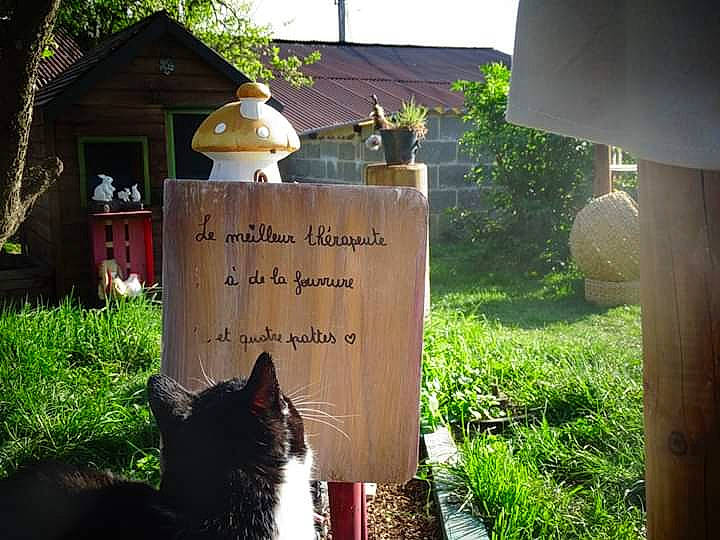 Le meilleur thérapeute
à de la fourrure
... et quatre pattes ♡